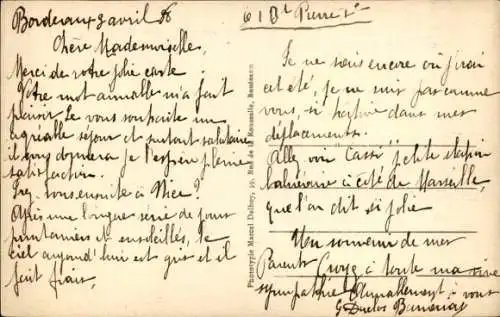 Bordeaux 8 avril 36
61 Bd Pierre 1er
Chère Mademoiselle,
Merci de votre jolie carte
Votre mot aimable m'a fait
plaisir. Je vous souhaite un
agréable séjour et surtout salutaire
il vous donnera je l'espère pleine
satisfaction.
Irez-vous ensuite à Nice ?
Après une longue série de jours
printaniers et ensoleillés, le
ciel aujourd'hui est gris et il
fait frais.
Phototypie Marcel Delboy, Bordeaux
Je ne sais encore où j'irai
cet été, je ne suis pas comme
vous, si hative dans mes
déplacements.
Allez voir "Cassis" petite station
balnéaire à côté de Marseille,
que l'on dit si jolie
Un souvenir de mes
Parents Croyez à toute ma vive
sympathie Amicalement à vous
G Duclos